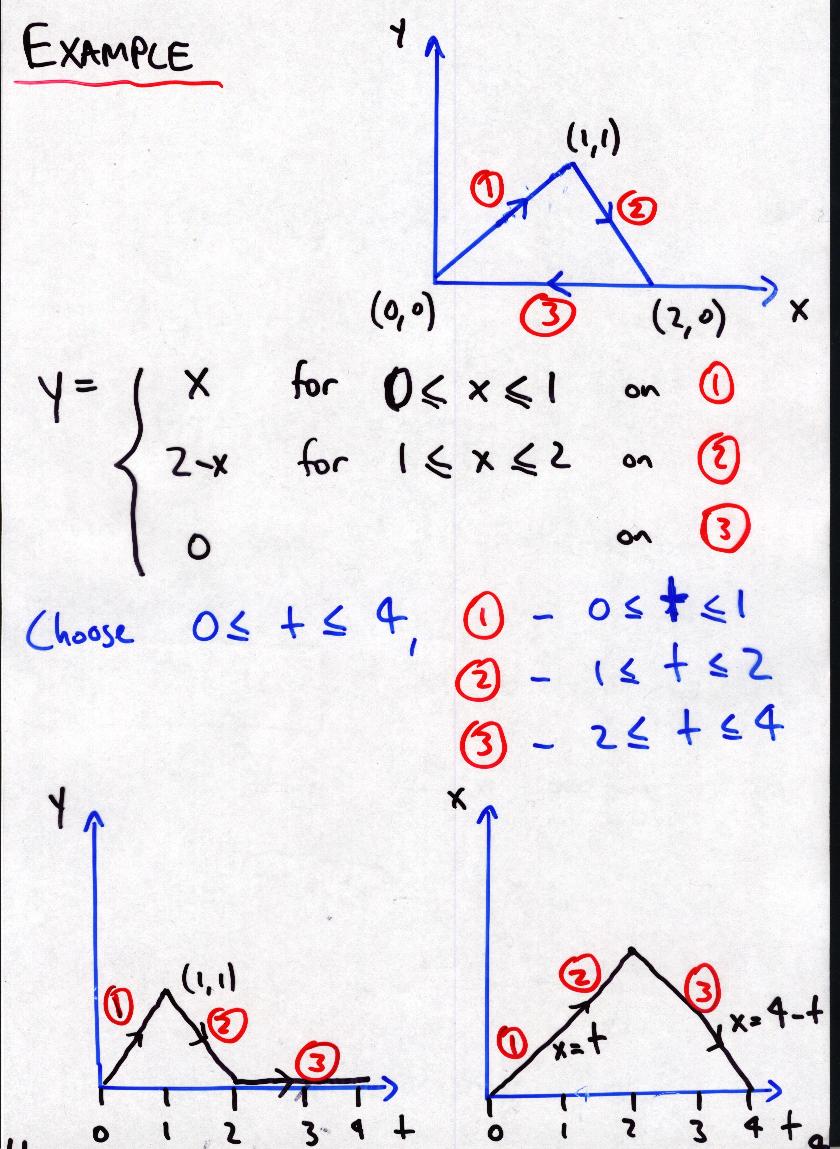 EXAMPLE
Y
(1,1)
① ②
(0,0) ③ (2,0) X
y = { x for 0 ≤ x ≤ 1 on ①
2-x for 1 ≤ x ≤ 2 on ②
0 on ③
Choose 0 ≤ t ≤ 4, ① - 0 ≤ t ≤ 1
② - 1 ≤ t ≤ 2
③ - 2 ≤ t ≤ 4
Y
(1,1)
① ② ③
0 1 2 3 4 t
x
① ② ③
x=t x=4-t
0 1 2 3 4 t